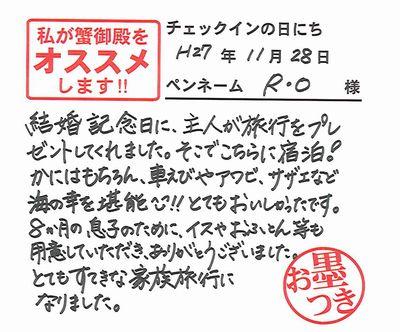 私が蟹御殿を
オススメ
します!!
チェックインの日にち
H27 年 11 月 28 日
ペンネーム R.O 様
結婚記念日に、主人が旅行をプレ
ゼントしてくれました。そこでこちらに宿泊!
かにはもちろん、車えびやアワビ、サザエなど
海の幸を堪能♡!! とてもおいしかったです。
8か月の息子のために、イスやおふとん等も
用意していただき、ありがとうございました。
とてもすてきな家族旅行に
なりました。
お墨つき